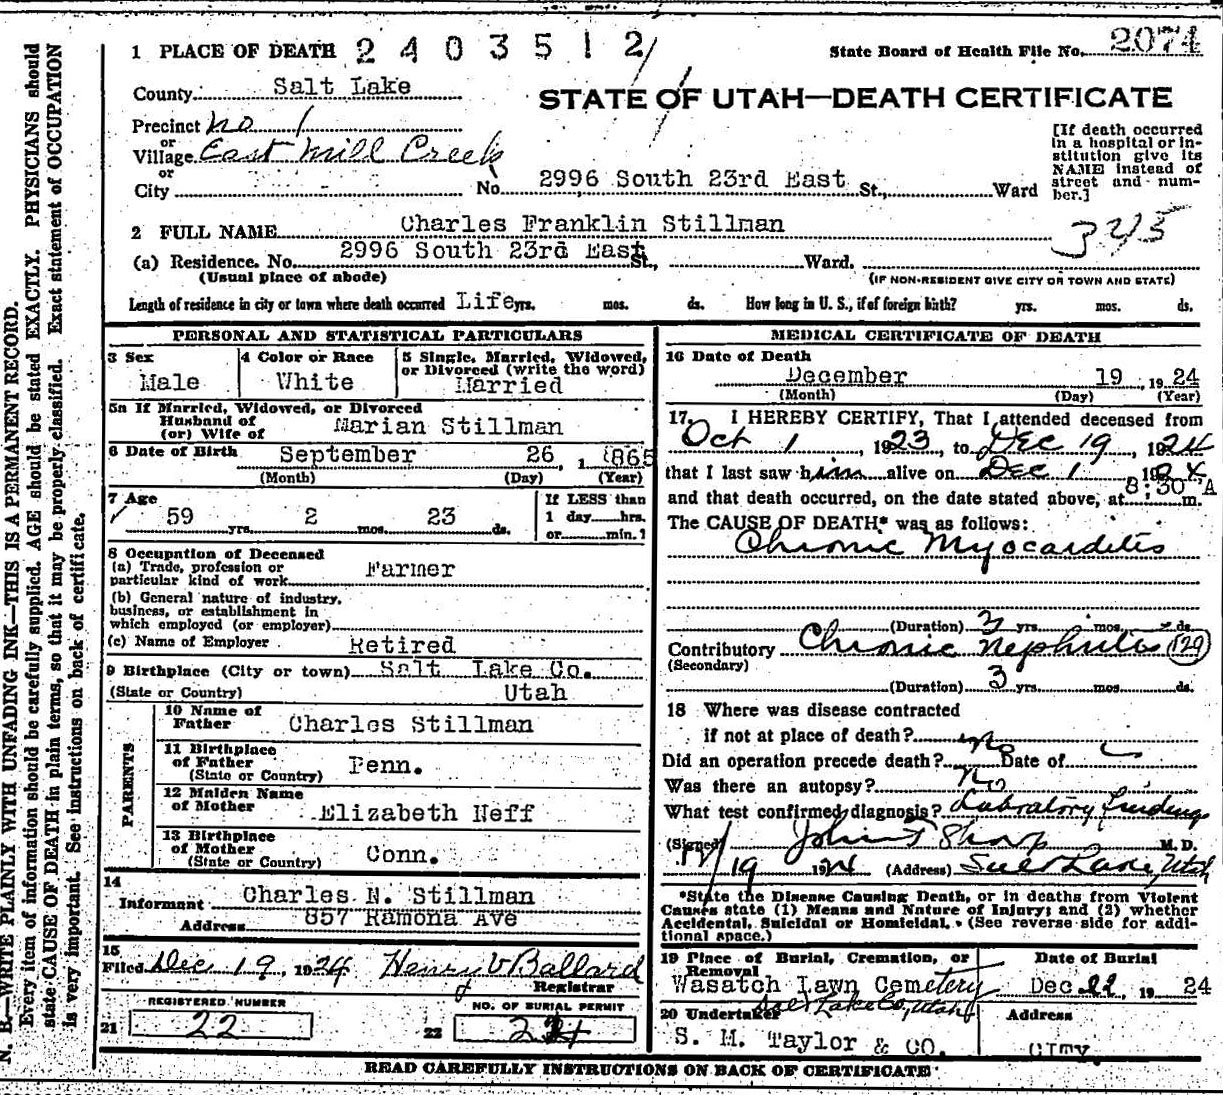 1 PLACE OF DEATH 2403512
State Board of Health File No. 2074
County Salt Lake
STATE OF UTAH—DEATH CERTIFICATE
Precinct No 1
or
Village East Mill Creek
or
City No. 2996 South 23rd East St., Ward
[If death occurred
in a hospital or in-
stitution give its
NAME instead of
street and num-
ber.]
2 FULL NAME Charles Franklin Stillman
(a) Residence. No. 2996 South 23rd East St., Ward.
(Usual place of abode)
(IF NON-RESIDENT GIVE CITY OR TOWN AND STATE)
Length of residence in city or town where death occurred Life yrs. mos. ds. How long in U. S., if of foreign birth? yrs. mos. ds.
PERSONAL AND STATISTICAL PARTICULARS
3 Sex
Male
4 Color or Race
White
5 Single, Married, Widowed,
or Divorced (write the word)
Married
5a If Married, Widowed, or Divorced
Husband of
(or) Wife of
Marian Stillman
6 Date of Birth September 26, 1865
(Month) (Day) (Year)
7 Age
59 yrs. 2 mos. 23 ds.
If LESS than
1 day hrs.
or min.?
8 Occupation of Deceased
(a) Trade, profession or
particular kind of work
Farmer
(b) General nature of industry,
business, or establishment in
which employed (or employer)
(c) Name of Employer Retired
9 Birthplace (City or town) Salt Lake Co.
(State or Country) Utah
PARENTS
10 Name of
Father
Charles Stillman
11 Birthplace
of Father
(State or Country)
Penn.
12 Maiden Name
of Mother
Elizabeth Neff
13 Birthplace
of Mother
(State or Country)
Conn.
14
Informant Charles N. Stillman
Address 857 Ramona Ave
15
Filed Dec 19, 1924 Henry V Ballard
Registrar
REGISTERED NUMBER
21 22
NO. OF BURIAL PERMIT
22
MEDICAL CERTIFICATE OF DEATH
16 Date of Death
December 19, 1924
(Month) (Day) (Year)
17 I HEREBY CERTIFY, That I attended deceased from
Oct 1 1923, to Dec 19, 1924
that I last saw him alive on Dec 1 1924
and that death occurred, on the date stated above, at 8:30 A m.
The CAUSE OF DEATH* was as follows:
Chronic Myocarditis
(Duration) 3 yrs. mos. ds.
Contributory Chronic Nephritis 129
(Secondary)
(Duration) 3 yrs. mos. ds.
18 Where was disease contracted
if not at place of death?
Did an operation precede death? No Date of
Was there an autopsy? No
What test confirmed diagnosis? Laboratory findings
(Signed) John F Sharp M. D.
12/19 1924 (Address) Salt Lake, Utah
*State the Disease Causing Death, or in deaths from Violent
Causes state (1) Means and Nature of Injury; and (2) whether
Accidental, Suicidal or Homicidal. (See reverse side for addi-
tional space.)
19 Place of Burial, Cremation, or
Removal
Wasatch Lawn Cemetery
Salt Lake Co, Utah
Date of Burial
Dec 22, 1924
20 Undertaker
S. M. Taylor & CO.
Address
CITY.
READ CAREFULLY INSTRUCTIONS ON BACK OF CERTIFICATE
N. B.—WRITE PLAINLY WITH UNFADING INK—THIS IS A PERMANENT RECORD.
Every item of information should be carefully supplied. AGE should be stated EXACTLY. PHYSICIANS should
state CAUSE OF DEATH in plain terms, so that it may be properly classified. Exact statement of OCCUPATION
is very important. See instructions on back of certificate.